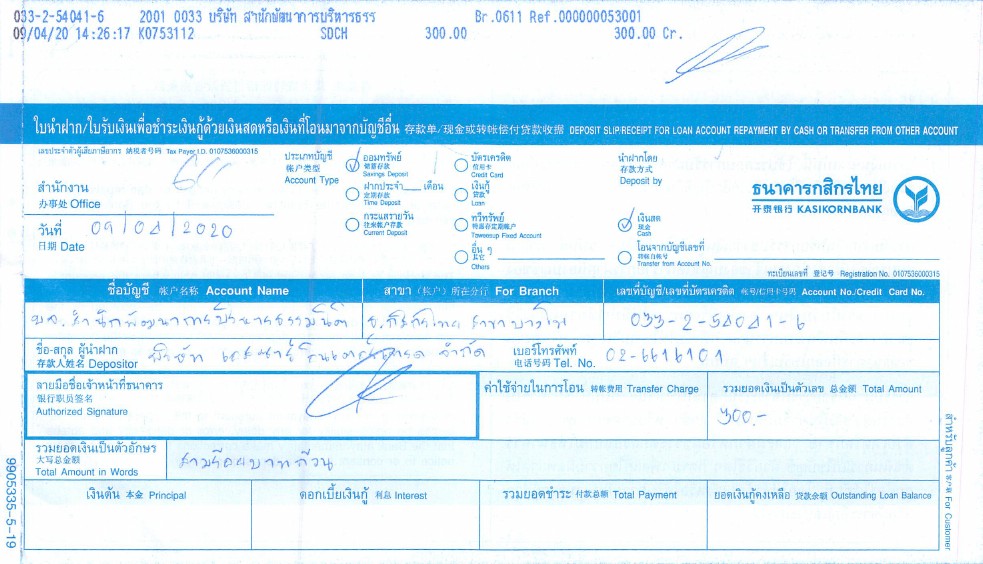 033-2-54041-6 2001 0033 บริษัท สำนักพัฒนาการบริหารธรร Br.0611 Ref.000000053001
09/04/20 14:26:17 K0753112 SDCH 300.00 300.00 Cr.
ใบนำฝาก/ใบรับเงินเพื่อชำระเงินกู้ด้วยเงินสดหรือเงินที่โอนมาจากบัญชีอื่น 存款单/现金或转帐偿付贷款收据 DEPOSIT SLIP/RECEIPT FOR LOAN ACCOUNT REPAYMENT BY CASH OR TRANSFER FROM OTHER ACCOUNT
เลขประจำตัวผู้เสียภาษีอากร 纳税者号码 Tax Payer I.D. 0107536000315
สำนักงาน
办事处 Office
วันที่ 09/04/2020
日期 Date
ประเภทบัญชี
帐户类型
Account Type
ออมทรัพย์
储蓄存款
Savings Deposit
ฝากประจำ___เดือน
定期存款
Time Deposit
กระแสรายวัน
往来帐户存款
Current Deposit
บัตรเครดิต
信用卡
Credit Card
เงินกู้
贷款
Loan
ทวีทรัพย์
特惠存定期帐户
Taweesup Fixed Account
อื่น ๆ
其它
Others
นำฝากโดย
存款方式
Deposit by
เงินสด
现金
Cash
โอนจากบัญชีเลขที่
转帐自帐号
Transfer from Account No.
ธนาคารกสิกรไทย
开泰银行 KASIKORNBANK
ทะเบียนเลขที่ 登记号 Registration No. 0107536000315
ชื่อบัญชี 帐户名称 Account Name
สาขา (帐户) 所在分行 For Branch
เลขที่บัญชี/เลขที่บัตรเครดิต 帐号/信用卡号码 Account No./Credit Card No.
บจ. สำนักพัฒนาการบริหารธรรมนิติ ธ.กสิกรไทย สาขาบางโพ 033-2-54041-6
ชื่อ-สกุล ผู้นำฝาก บริษัท จำกัด เบอร์โทรศัพท์ 02-6616101
存款人姓名 Depositor 电话号码 Tel. No.
ลายมือชื่อเจ้าหน้าที่ธนาคาร
银行职员签名
Authorized Signature
ค่าใช้จ่ายในการโอน 转帐费用 Transfer Charge
รวมยอดเงินเป็นตัวเลข 总金额 Total Amount
300.-
รวมยอดเงินเป็นตัวอักษร
大写总金额
Total Amount in Words
สามร้อยบาทถ้วน
เงินต้น 本金 Principal
ดอกเบี้ยเงินกู้ 利息 Interest
รวมยอดชำระ 付款总额 Total Payment
ยอดเงินกู้คงเหลือ 贷款余额 Outstanding Loan Balance
9905335-5-19
สำหรับลูกค้า 客户联 For Customer